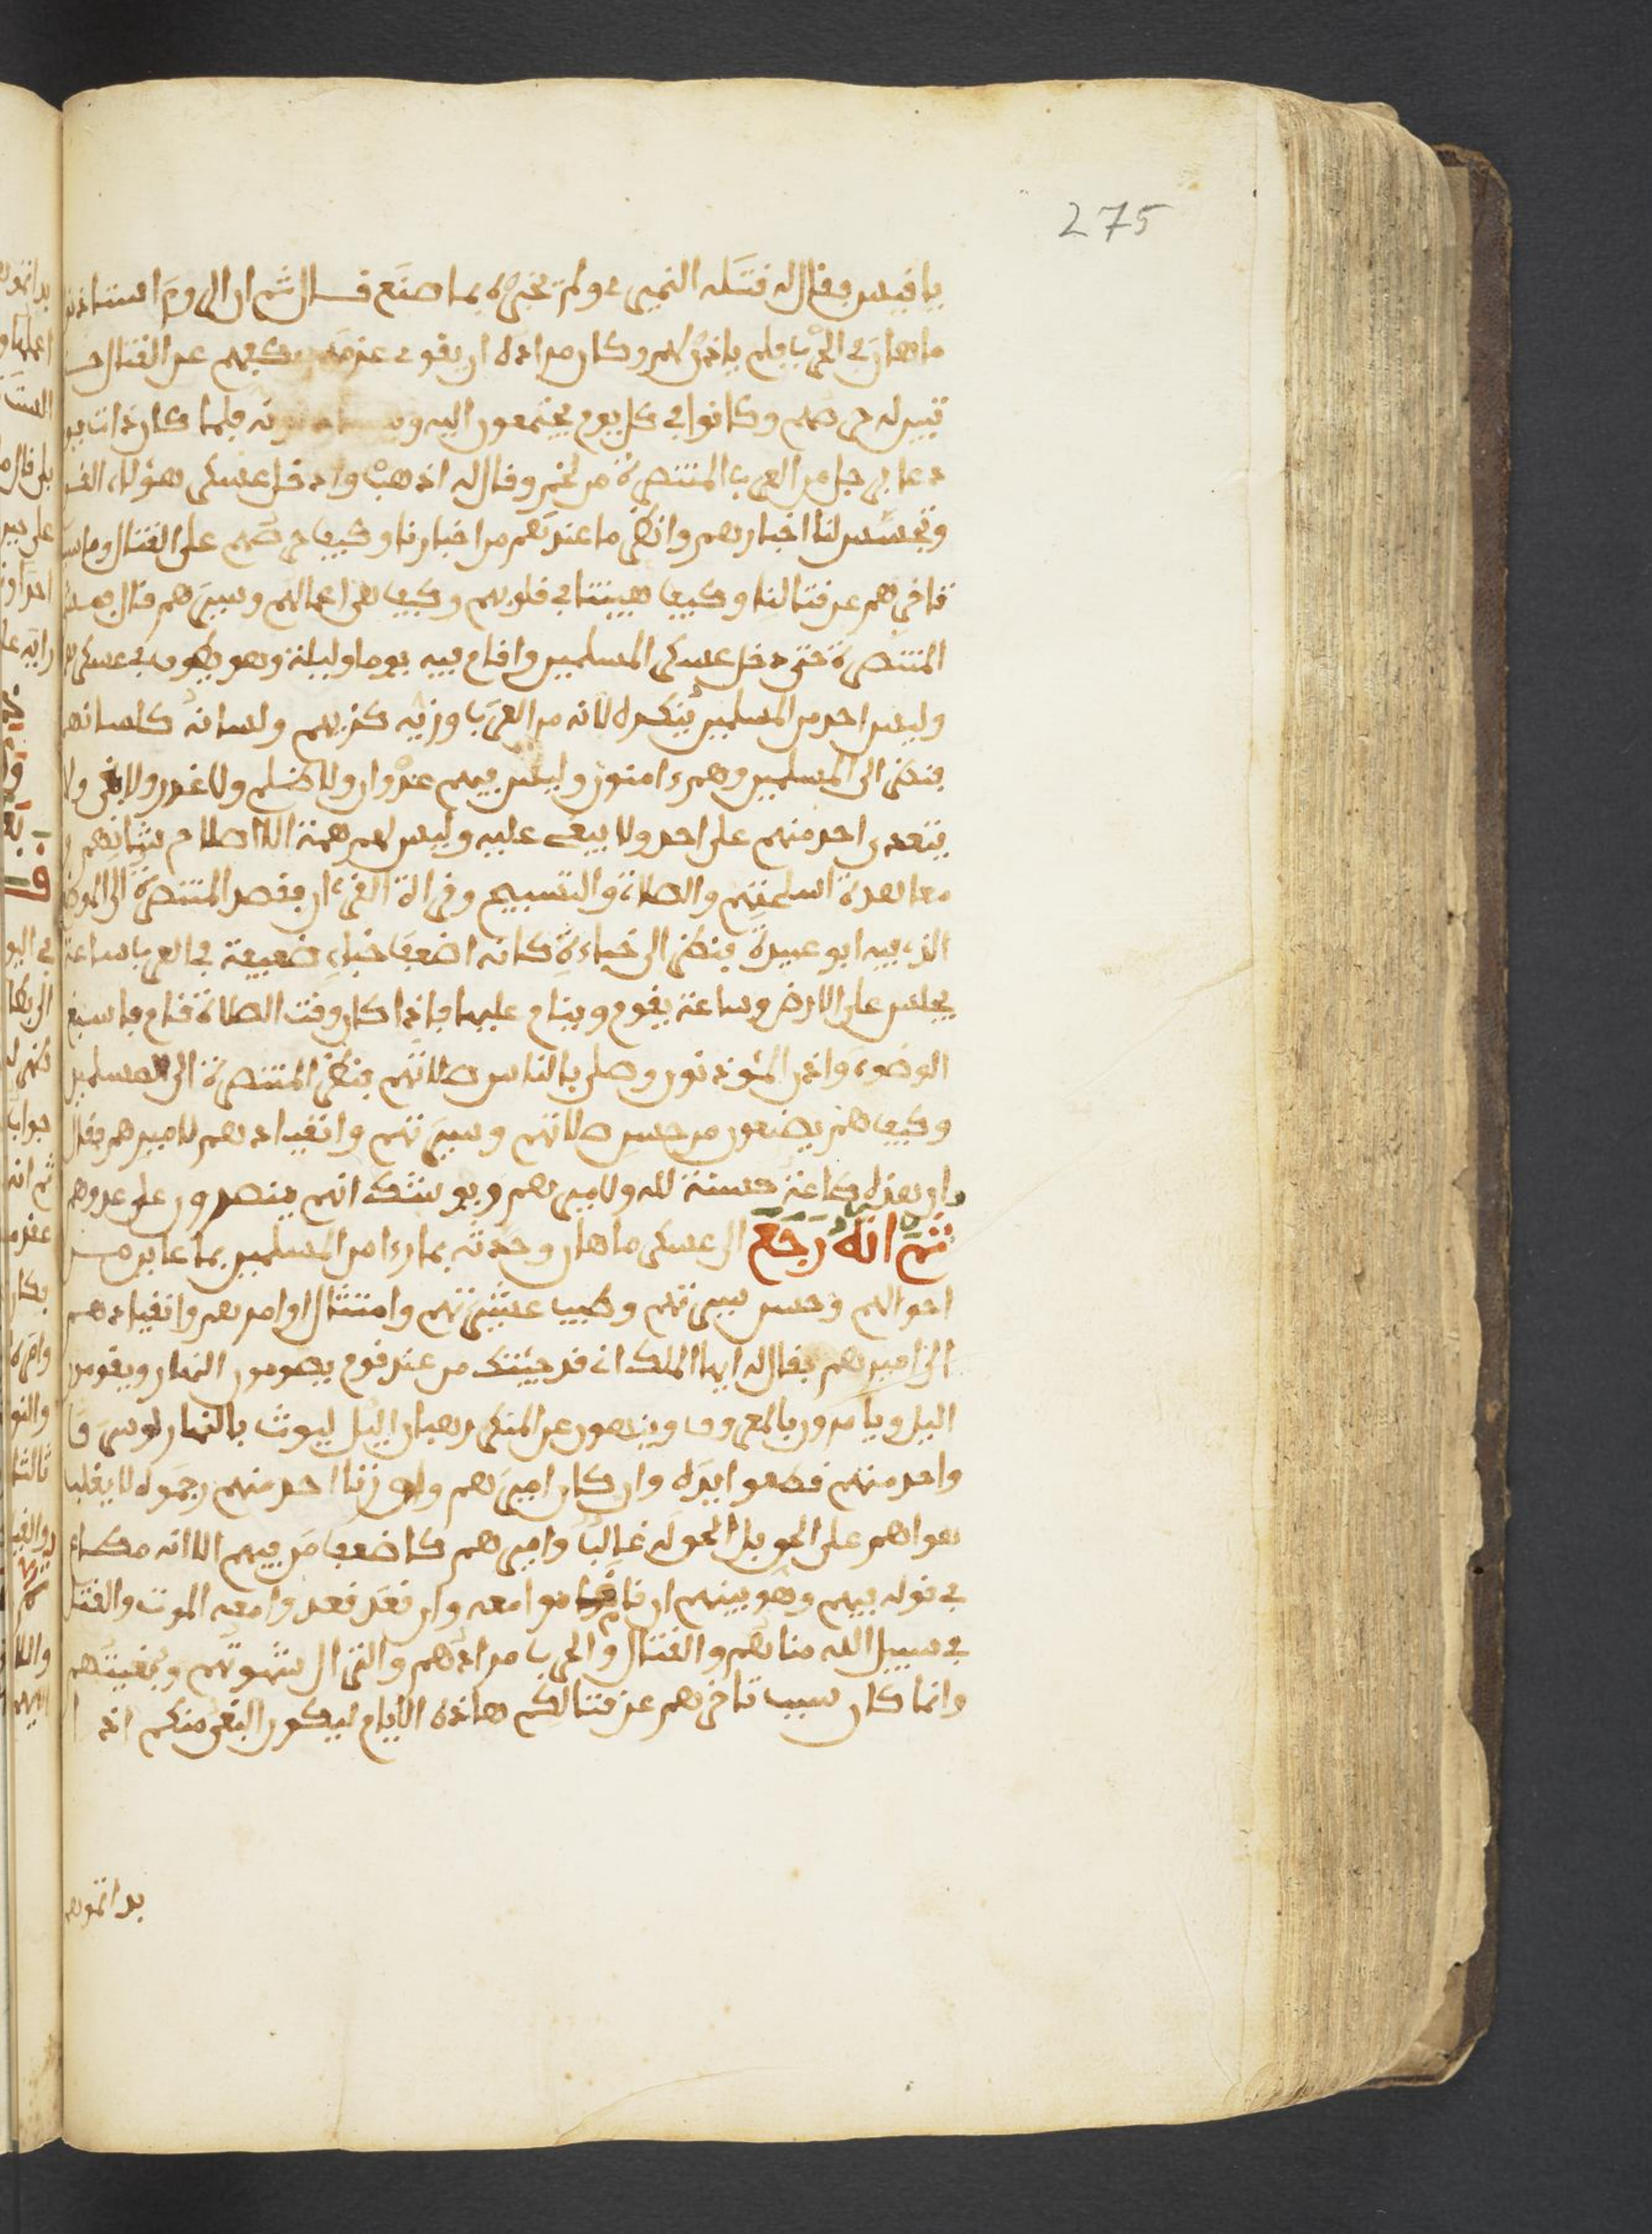 275
يا قيس فقال له قتله النميري ولم يخبره بما صنع قال ثم ان الروم استاذنوا
ماهان في الحرب فلم ياذن لهم وكان مراده ان يقوى عزمه يكفهم عن القتال حتى
تبين له حرصهم وكانوا في كل يوم يجتمعون اليه فلما كان ذات يوم
دعا برجل من العرب المتنصرة من لخم وقال له اذهب وادخل عسكر هؤلاء القوم
وتجسس لنا اخبارهم وانظر ما عندهم من اخبارنا وكيف حرصهم على القتال وما سبب
تاخرهم عن قتالنا وكيف هيبتنا في قلوبهم وكيف هي اعمالهم وسيرهم قال فمشى
المتنصرة حتى دخل عسكر المسلمين واقام فيه يوما وليلة وهو يطوف في عسكر
وليس احد من المسلمين ينكره لانه من العرب وزيه كزيهم ولسانه كلسانهم
فنظر الى المسلمين وهم ءامنون وليس فيهم عدوان ولا ظلم ولا غدر ولا ولا
يتعدى احد منهم على احد ولا يبغي عليه وليس لهم همة الا اصلاح شانهم و
معاهدة اسلحتهم والصلاة والتسبيح وقراءة القرءان فقصد المتنصرة الى الموضع
الذي فيه ابو عبيدة فنظر الى خباءه كانه اضعف خباء ضعيفة في العرب ساعة
يجلس على الارض وساعة يقوم وينام عليها فاذا كان وقت الصلاة قام فاسبغ
الوضوء واذن المؤذنون وصلى بالناس صلاتهم فنظر المتنصرة الى المسلمين
وكيف هم يصنعون من حسن صلاتهم وسيرتهم وانقيادهم لاميرهم فقال
ان هذه طاعة حسنة لله ولاميرهم ويوشك انهم ينصرون على عدوهم
ثم انه رجع الى عسكر ماهان وحدثه بما رءا من المسلمين بما عاين من
احوالهم وحسن سيرتهم وطيب عشيرتهم وامتثال اوامرهم وانقيادهم
الى اميرهم فقال له ايها الملك اني قد جيتك من عند قوم يصومون النهار ويقومون
اليل ويامرون بالمعروف وينهون عن المنكر رهبان اليل ليوث بالنهار لو سرق
واحد منهم قطعوا ايده وان كان اميرهم ولو زنا احد منهم رجموه لا يغلب
هواهم على الحق بل الحق له غالب واميرهم كاضعف من فيهم الا انه مطاع
في قوله فيهم وهو بينهم ان قام قاموا معه وان قعد قعدوا معه الموت والقتل
في سبيل الله مناهم والقتال والحرب مرادهم والنزال شهوتهم وبغيتهم
وانما كان سبب تاخرهم عن قتالكم هاذه الايام ليكون البغي منكم اذا
بداتموهم